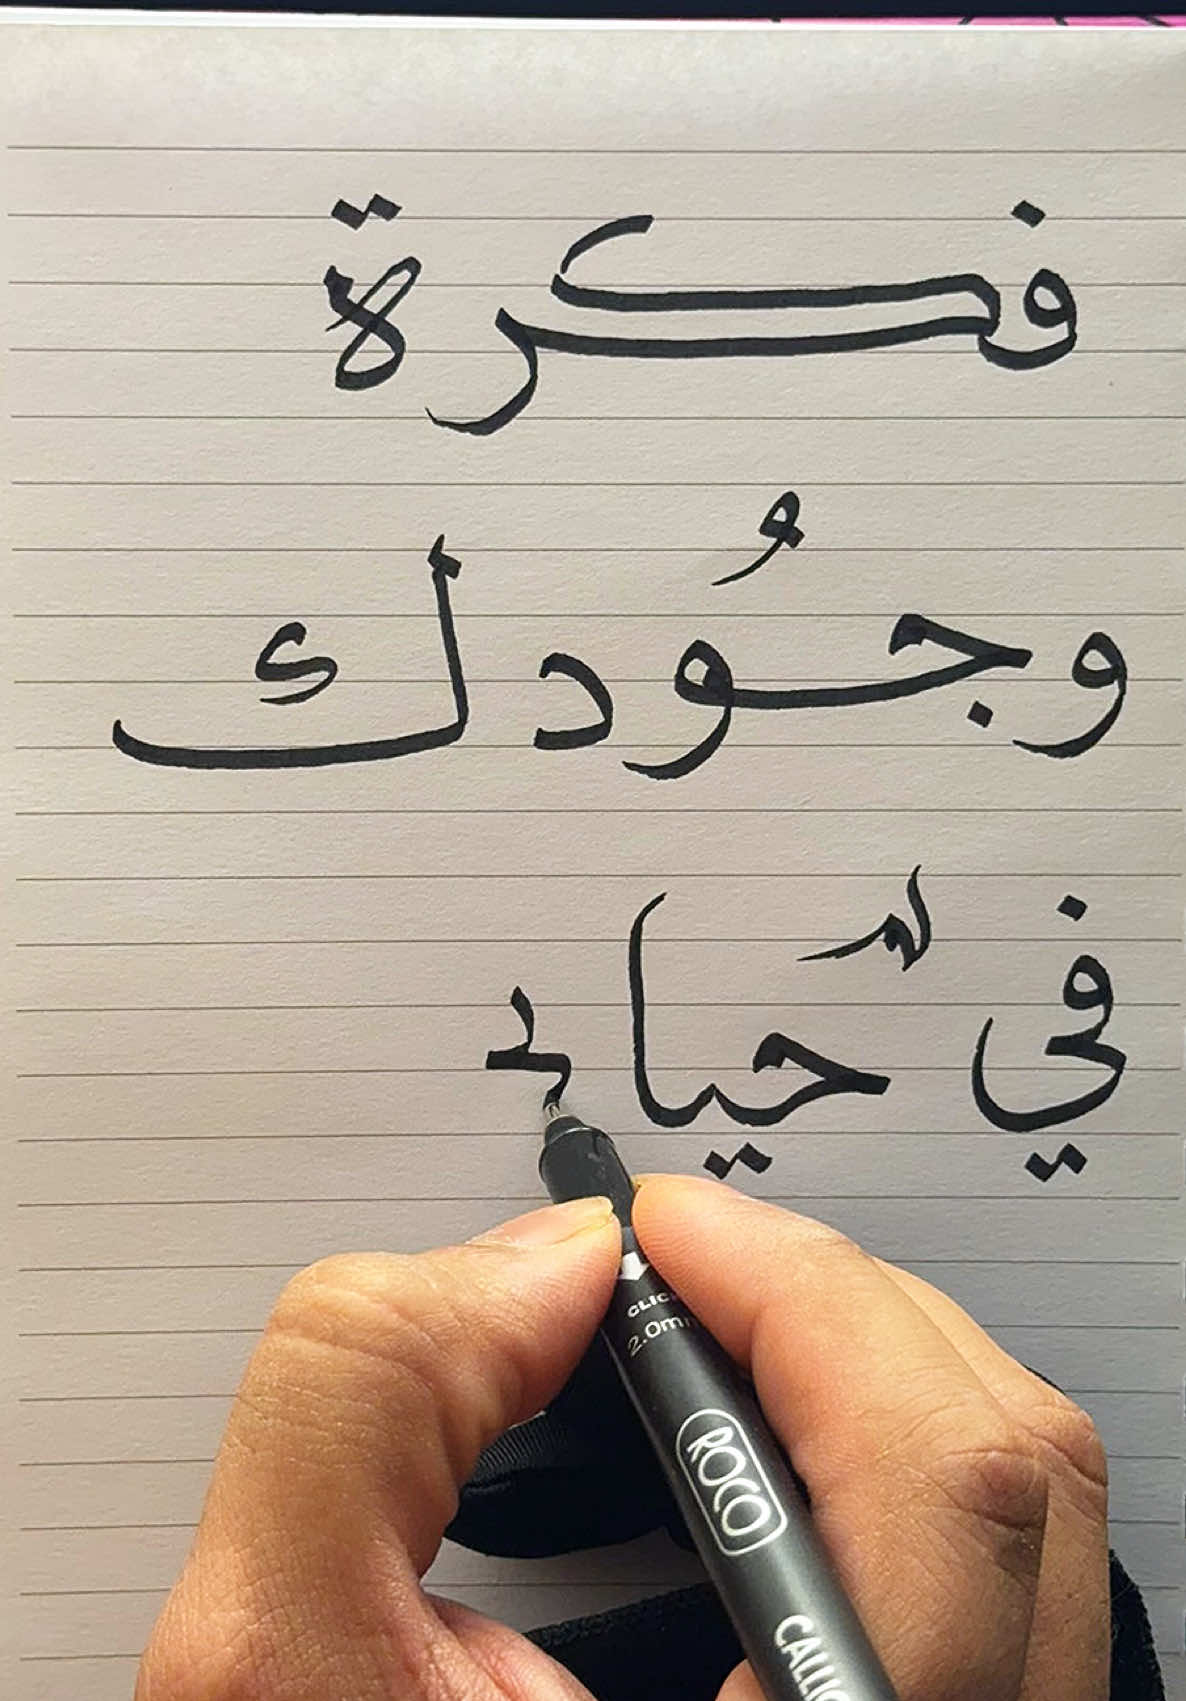 فكرة
وجُودك
في حيا
CLIC
2.0m
ROCO
CALLIG